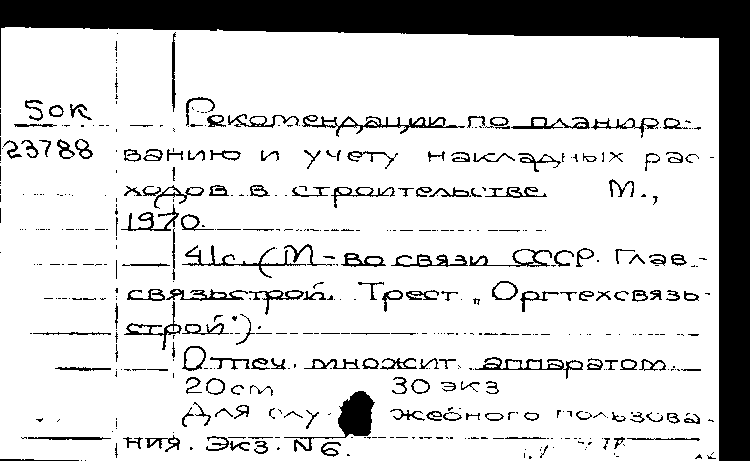 50к
23788
Рекомендации по планиро-
ванию и учету накладных рас-
ходов в строительстве. М.,
1970.
41с. (М-во связи СССР. Глав-
связьстрой. Трест „Оргтехсвязь-
строй").
Отпеч. множит. аппаратом.
20см 30 экз
Для слу- жебного пользова-
ния. Экз. N6.